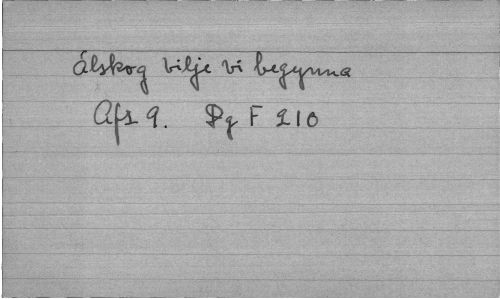 Älskog vilje vi begynna
Afs 9. Pg F 210